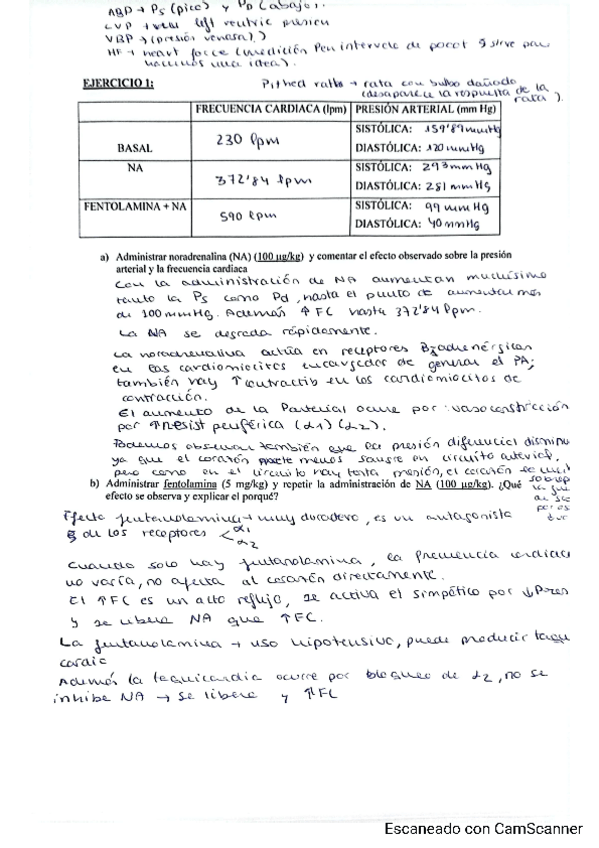 ABP → Ps (pico) y PD (abajo).
LVP → left ventric presion
VBP → (presión venosa)
HF → heart force (medición
EJERCICIO 1:
Pithed ratts → rata con bulbo dañado
(desaparece la respuesta de la rata).
FRECUENCIA CARDIACA (lpm) PRESIÓN ARTERIAL (mm Hg)
BASAL 230 lpm SISTÓLICA: 159'89 mmHg
DIASTÓLICA: 120 mmHg
NA 372'84 lpm SISTÓLICA: 293 mm Hg
DIASTÓLICA: 281 mm Hg
FENTOLAMINA + NA 590 lpm SISTÓLICA: 99 mm Hg
DIASTÓLICA: 40 mm Hg
a) Administrar noradrenalina (NA) (100 µg/kg) y comentar el efecto observado sobre la presión
arterial y la frecuencia cardiaca
Con la administración de NA aumentan muchísimo
tanto la Ps como Pd, hasta el punto de aumentar más
de 100 mmHg. Además ↑ FC hasta 372'84 lpm.
La NA se degrada rápidamente.
La noradrenalina actúa en receptores
en los cardiomiocitos encargados de generar el PA;
también hay ↑ contractib en los cardiomiocitos de
contracción.
El aumento de la Parterial ocurre por vasoconstricción
por ↑ resist periférica (α1) (α2).
Podemos observar también que la presión diferencial disminu
ya que el corazón menos sangre en circuito arterial,
pero como en el circuito hay tanta presión, el corazón
b) Administrar fentolamina (5 mg/kg) y repetir la administración de NA (100 µg/kg). ¿Qué
efecto se observa y explicar el porqué?
Efecto fentanolamina → muy duradero, es un antagonista
de los receptores < α1
α2
Cuando solo hay fentanolamina, la frecuencia cardiaca
no varía, no afecta al corazón directamente.
El ↑FC es un acto reflujo, se activa el simpático por ↓Pres
y se libera NA que ↑FC.
La fentanolamina → uso hipotensivo, puede producir taqui
cardia
Además la taquicardia ocurre por bloqueo de α2, no se
inhibe NA → se libera y ↑FC
Escaneado con CamScanner